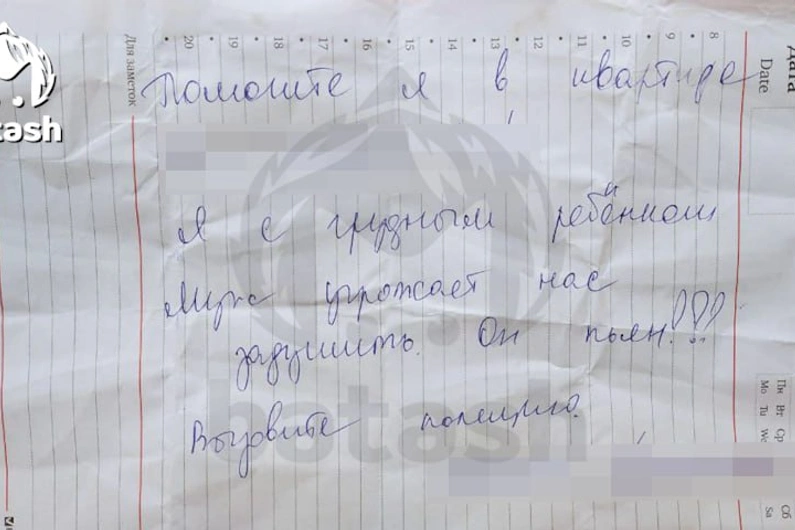 Помогите я в квартире
Я с грудным ребёнком
Муж угрожает нас
задушить. Он пьян!!!
Вызовите полицию.
Для заметок
20 19 18 17 16 15 14 13 12 11 10 9 8
Дата
Date
Пн Вт Ср
Mo Tu We
Сб
Sa
batash